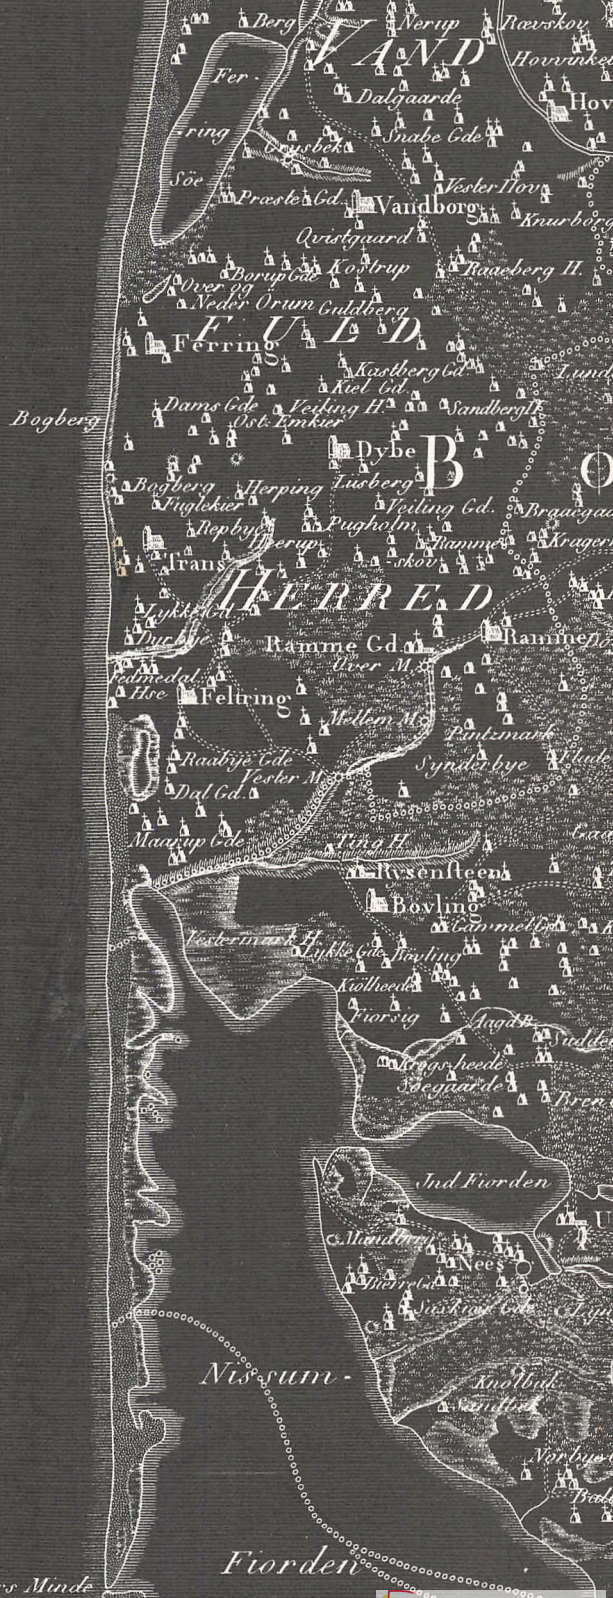 Berg
Nerup
Rævskov
VAND
Hovvinkel
Fer-
Dalgaarde
Hov
ring
Snabe Gde
Söe
Præste Gd.
Vester Hov
Vandborg
Knurborg
Qvistgaard
Borup Gde
Kostrup
Raaeberg H.
Over og
Neder Orum
Guldberg
FULD
Ferring
Kastberg Gd.
Lund
Kiel Gd.
Dams Gde
Veiling H.
Sandberg H.
Bogberg
Ost. Emkier
Dybe
B
Ø
Bogberg
Herping
Lusberg
Fuglekier
Veiling Gd.
Pugholm
Ramme
skov
Trans
HERRED
Lykke Gd.
Ramme Gd.
Ramme
Over M.
Fedmedal
Hse
Feltring
Mellem M.
Pintzmark
Raabye Gde
Synderbye
Vester M.
Dal Gd.
Maarup Gde
Ting H.
Rysensteen
Bovling
Gammel Gd.
Vestermark H.
Lykke Gde
Bovling
Kiolheede
Fiorsig
Aagd B.
Krogsheede
Soegaarde
Jnd Fiorden
Nees
Nissum-
Knolbul
Fiorden
rs Minde